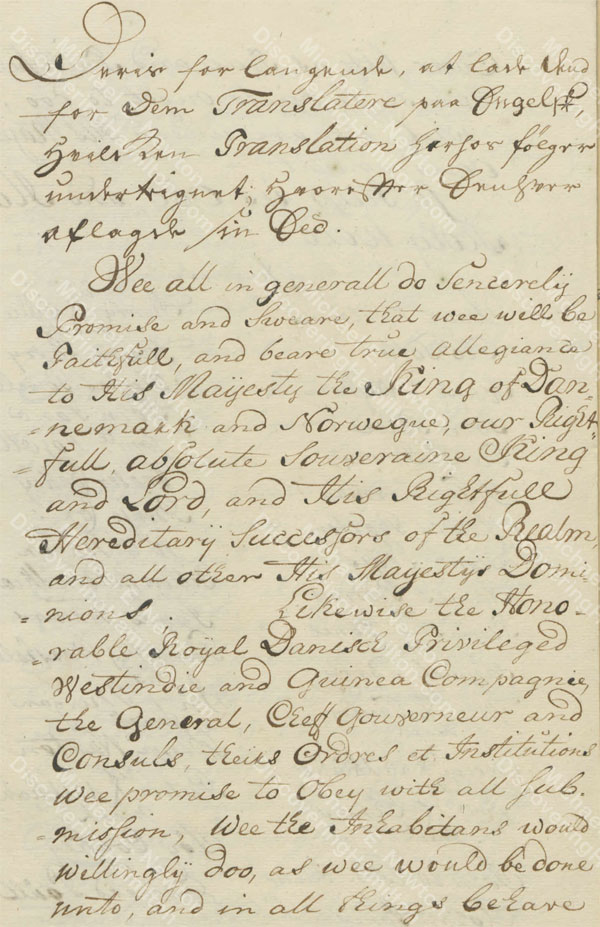 Deris for langende, at lade dend
for Dem Translatere paa Engelsk,
Hvilken Translation herhos følger
undertegnet; Hvorefter Denhver
aflagde sin Eed.
Wee all in generall do Sencerely
Promise and Sweare, that wee will be
Faithfull, and beare true allegiance
to His Mayesty the King of Dan=
=nemark and Norwegue, our Right=
=full, absolute Souveraine King
and Lord, and His Rightfull
Hereditary Successors of the Realm,
and all other His Mayestys Domi
=nions. Likewise the Hono=
=rable Royal Danisch Privileged
Westindie and Guinea Compagnie,
the General, Cheff Gouverneur and
Consuls, theirs Ordres et Institutions
Wee promise to Obey with all sub.
=mission, Wee the Inhabitans would
willingly doo, as wee would be done
unto, and in all things behave